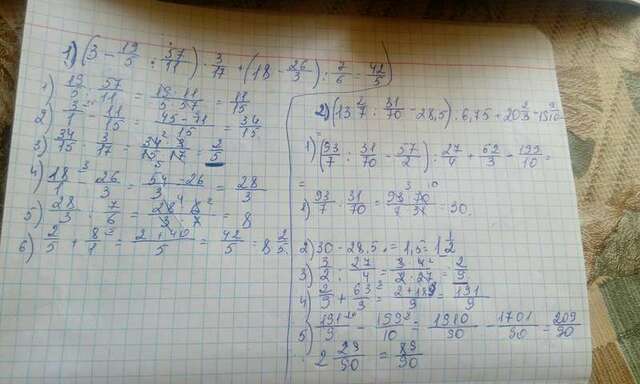 1) (3 - 19/5 : 57/11) · 3/17 + (18 - 26/3) : 7/6 = 42/5)
1) 19/5 : 57/11 = 19·11/5·57 = 11/15
2) 3/1 - 11/15 = 45-11/15 = 34/15
3) 34/15 · 3/17 = 34·3/15·17 = 2/5
4) 18/1 - 26/3 = 54-26/3 = 28/3
5) 28/3 : 7/6 = 28·6/3·7 = 8
6) 2/5 + 8/1 = 2+40/5 = 42/5 = 8 2/5
2) (13 2/7 : 31/70 - 28,5) : 6,75 + 20 2/3 - 19 9/10 =
1) (93/7 : 31/70 - 57/2) : 27/4 + 62/3 - 199/10 =
=
1) 93/7 : 31/70 = 93·70/7·31 = 30.
2) 30 - 28,5 = 1,5 = 1 1/2
3) 3/2 : 27/4 = 3·4/2·27 = 2/9
4) 2/9 + 63/3 = 2+189/9 = 191/9
5) 191/9 - 199/10 = 1910/90 - 1701/90 = 209/90
2 29/90 = 89/90